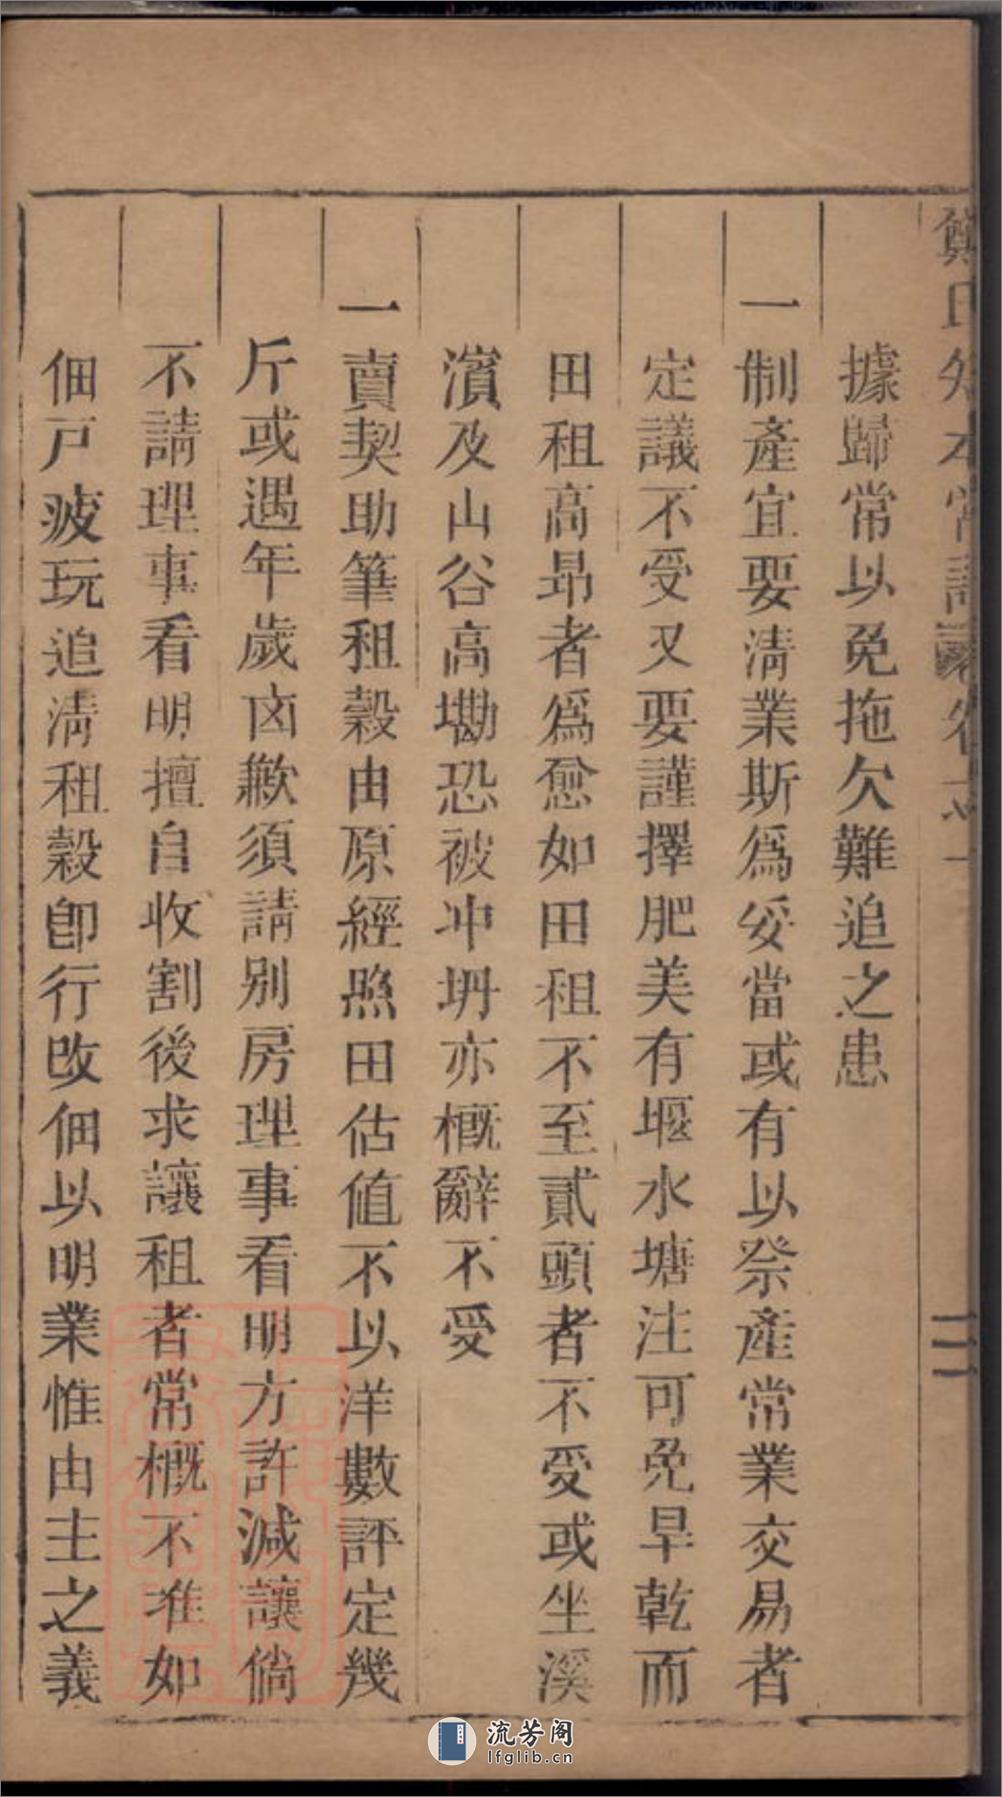 據歸常以免拖欠難追之患
一制產宜要淸業斯爲妥當或有以祭產常業交易者
定議不受又要謹擇肥美有堰水塘注可免旱乾而
田租高昻者爲愈如田租不至貳頭者不受或坐溪
濱及山谷高墈恐被冲坍亦概辭不受
一賣契助筆租穀由原經照田估值不以洋數評定幾
斤或遇年歲凶歉須請別房理事看明方許減讓倘
不請理事看明擅自收割後求讓租者常概不准如
佃戸疲玩追淸租穀卽行改佃以明業惟由主之義
流芳阁
lfglib.cn